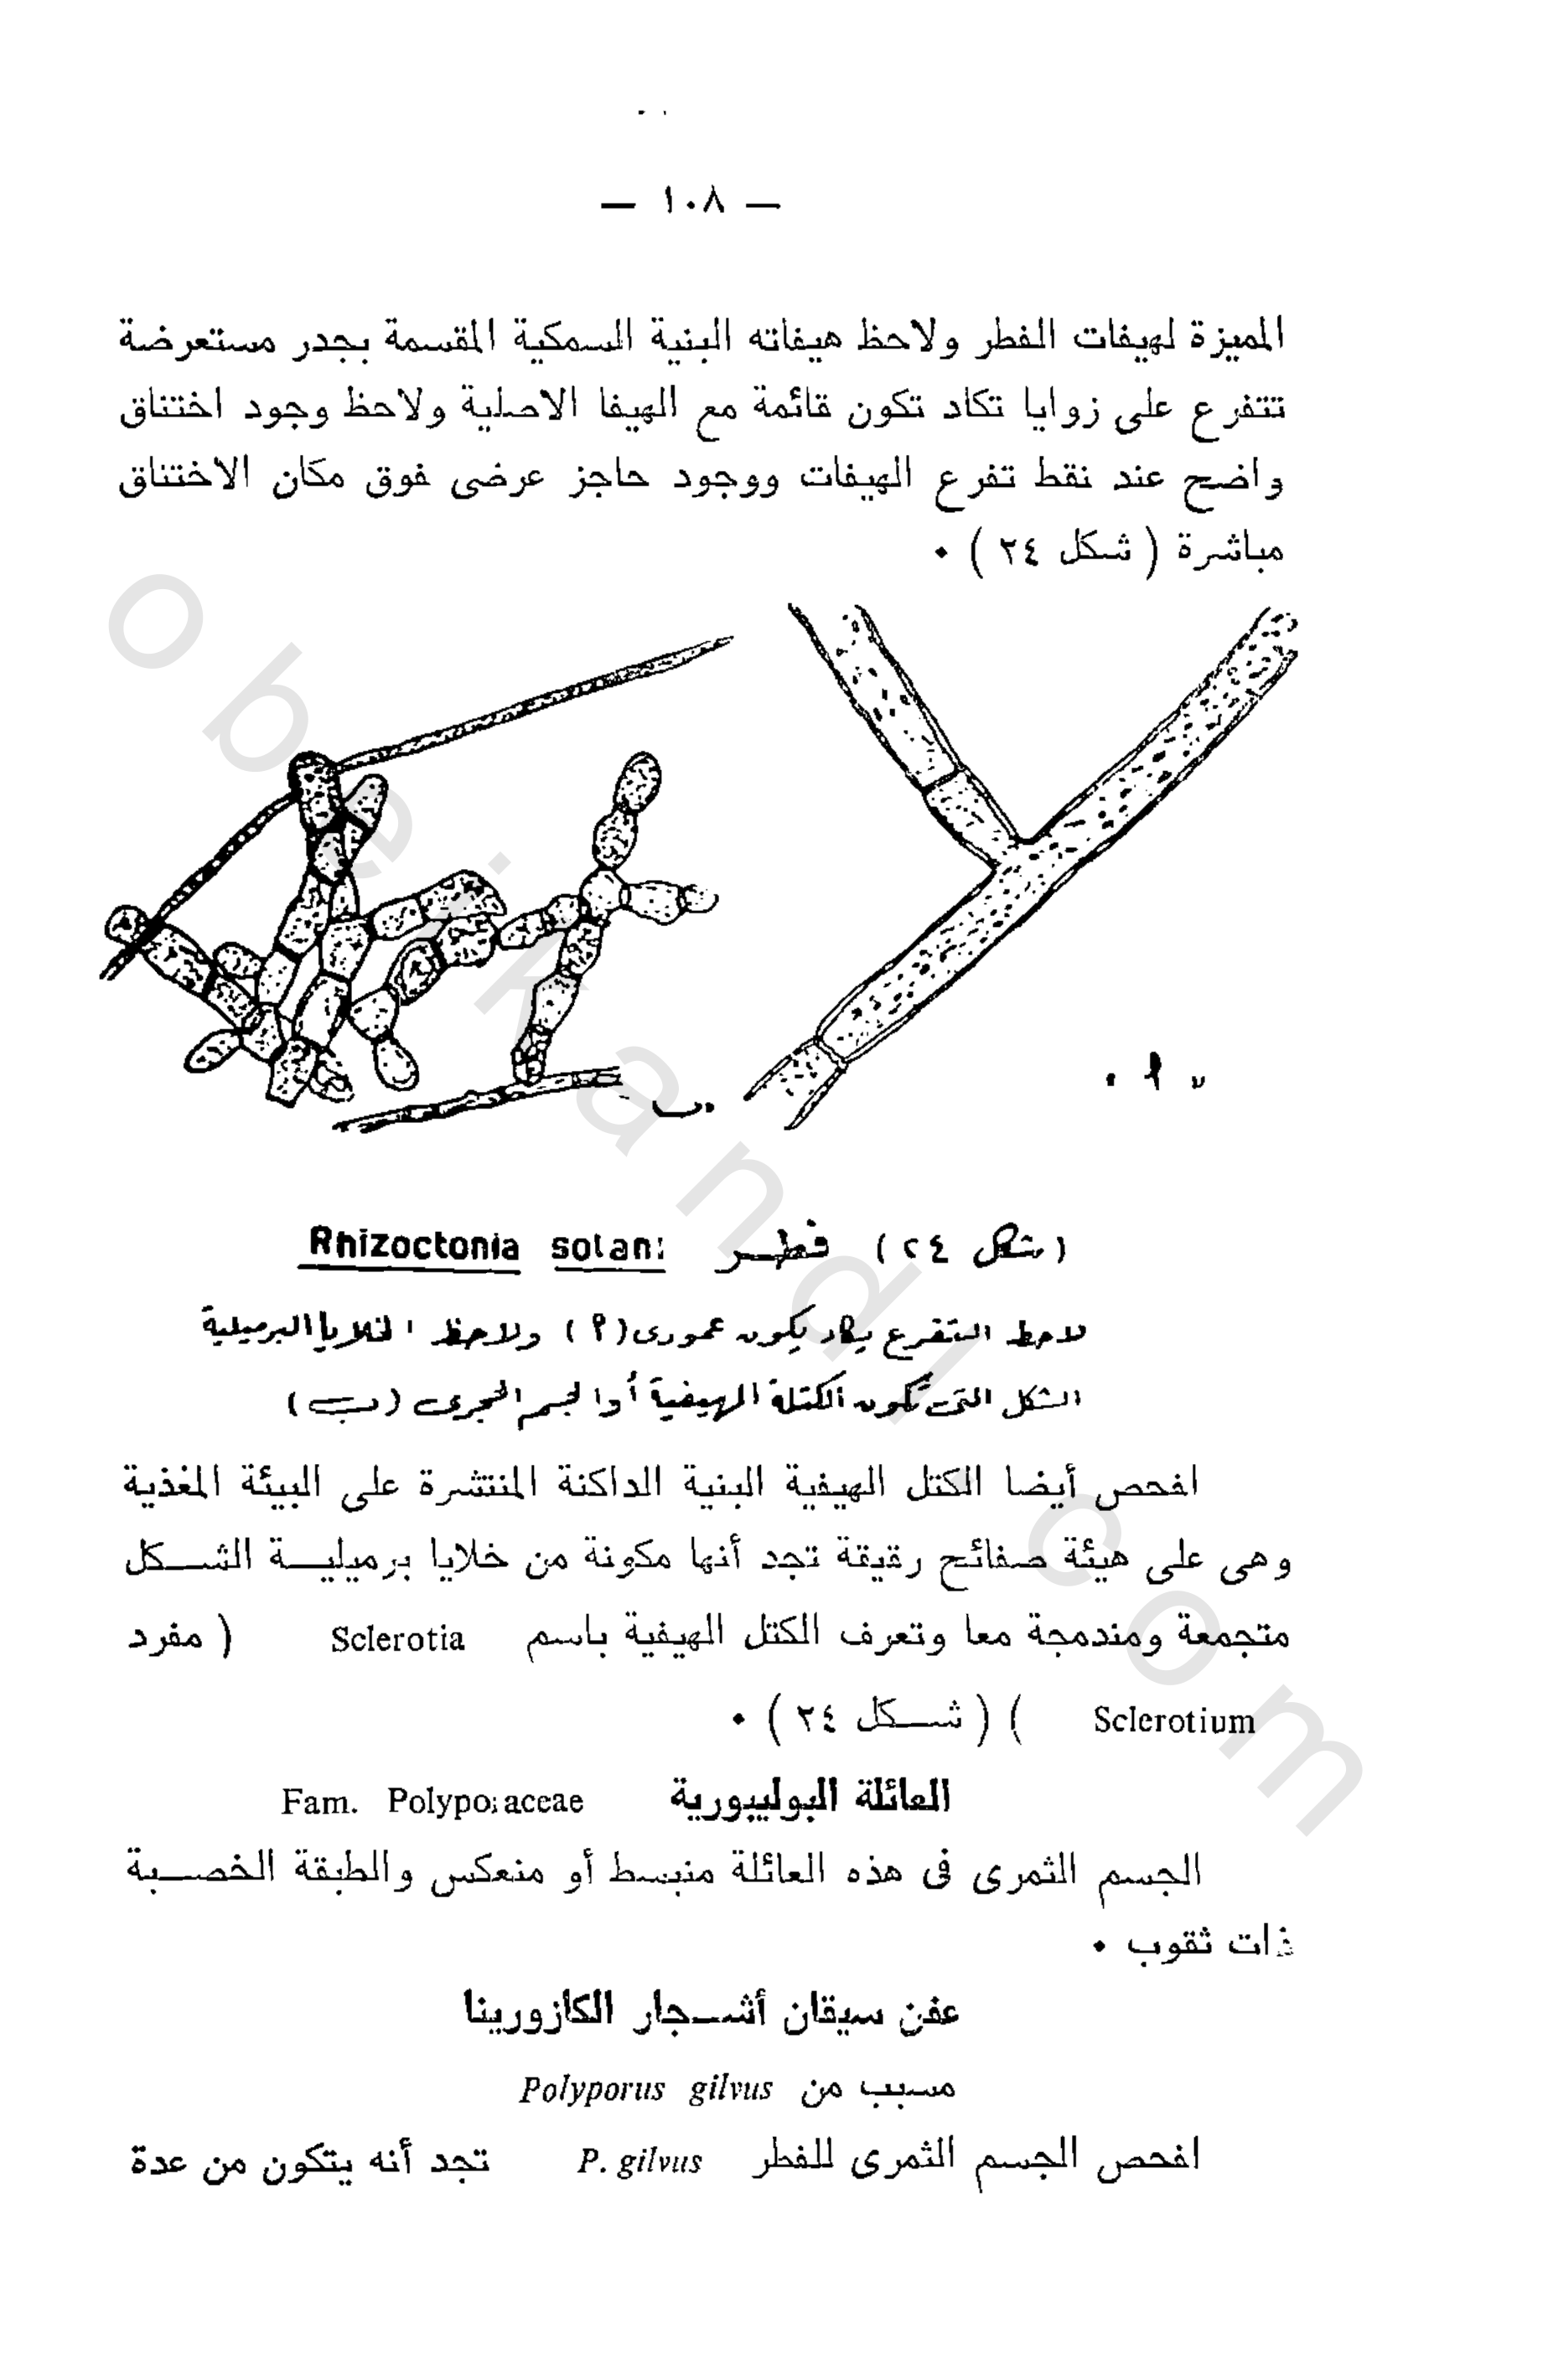 — ١٠٨ —
المميزة لهيفات الفطر ولاحظ هيفاته البنية السمكية المقسمة بجدر مستعرضة
تتفرع على زوايا تكاد تكون قائمة مع الهيفا الاصلية ولاحظ وجود اختناق
واضح عند نقط تفرع الهيفات ووجود حاجز عرضى فوق مكان الاختناق
مباشرة ( شكل ٢٤ ) ٠
أ
ب
(شكل ٢٤) فطر Rhizoctonia solani
لاحظ التفرع يكاد يكون عمودى (أ) ولاحظ الخلايا البرميلية
الشكل التى تكون الكتلة الهيفية أو الجسم الحجرى (ب)
افحص أيضا الكتل الهيفية البنية الداكنة المنتشرة على البيئة المغذية
وهى على هيئة صفائح رقيقة تجد أنها مكونة من خلايا برميلية الشكل
متجمعة ومندمجة معا وتعرف الكتل الهيفية باسم Sclerotia ( مفرد
Sclerotium ) ( شكل ٢٤ ) ٠
العائلة البوليبورية Fam. Polyporaceae
الجسم الثمرى فى هذه العائلة منبسط أو منعكس والطبقة الخصبة
ذات ثقوب ٠
عفن سيقان أشجار الكازورينا
مسبب من Polyporus gilvus
افحص الجسم الثمرى للفطر P. gilvus تجد أنه يتكون من عدة
obeikandl.com